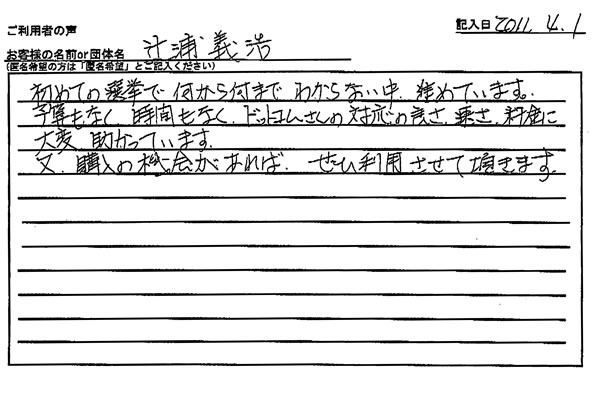 ご利用者の声
記入日 2011. 4. 1
お客様の名前or団体名 辻浦 義浩
(匿名希望の方は「匿名希望」とご記入ください)
初めての選挙で 何から付まで わからない中、進めています。
予算もなく、時間もなく、ドットコムさんの対応の良さ、、料金に
大変 助かっています。
又、購入の機会があれば、ぜひ利用させて頂きます。